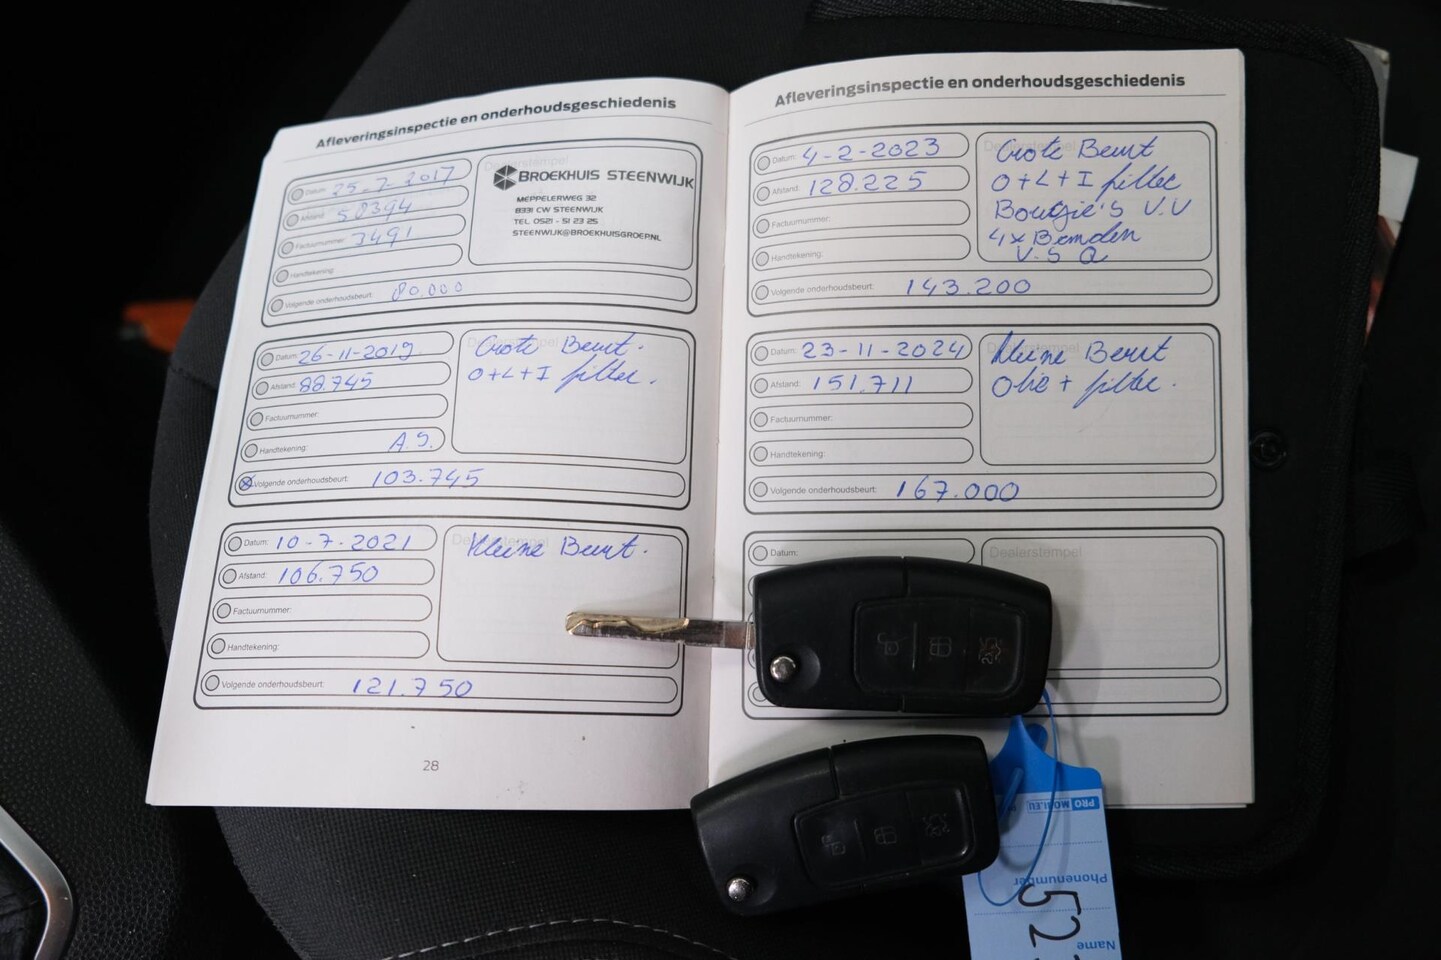 Afleveringsinspectie en onderhoudsgeschiedenis
Datum: 25-7-2017
Afstand: 58394
Factuurnummer: 3491
Handtekening:
Volgende onderhoudsbeurt: 80.000
Dealerstempel
BROEKHUIS STEENWIJK
MEPPELERWEG 32
8331 CW STEENWIJK
TEL. 0521 - 51 23 25
STEENWIJK@BROEKHUISGROEP.NL
Datum: 26-11-2019
Afstand: 88.745
Factuurnummer:
Handtekening: A.S.
Volgende onderhoudsbeurt: 103.745
Grote Beurt.
O+L+I filter.
Datum: 10-7-2021
Afstand: 106.750
Factuurnummer:
Handtekening:
Volgende onderhoudsbeurt: 121.750
Kleine Beurt.
28
Afleveringsinspectie en onderhoudsgeschiedenis
Datum: 4-2-2023
Afstand: 128.225
Factuurnummer:
Handtekening:
Volgende onderhoudsbeurt: 143.200
Grote Beurt
O+L+I filter
Bougie's V.V
4x Banden
V.S Q
Datum: 23-11-2024
Afstand: 151.711
Factuurnummer:
Handtekening:
Volgende onderhoudsbeurt: 167.000
Kleine Beurt
Olie + filter.
Datum:
Dealerstempel
PRO MOBI.EU
Phonenumber
Name